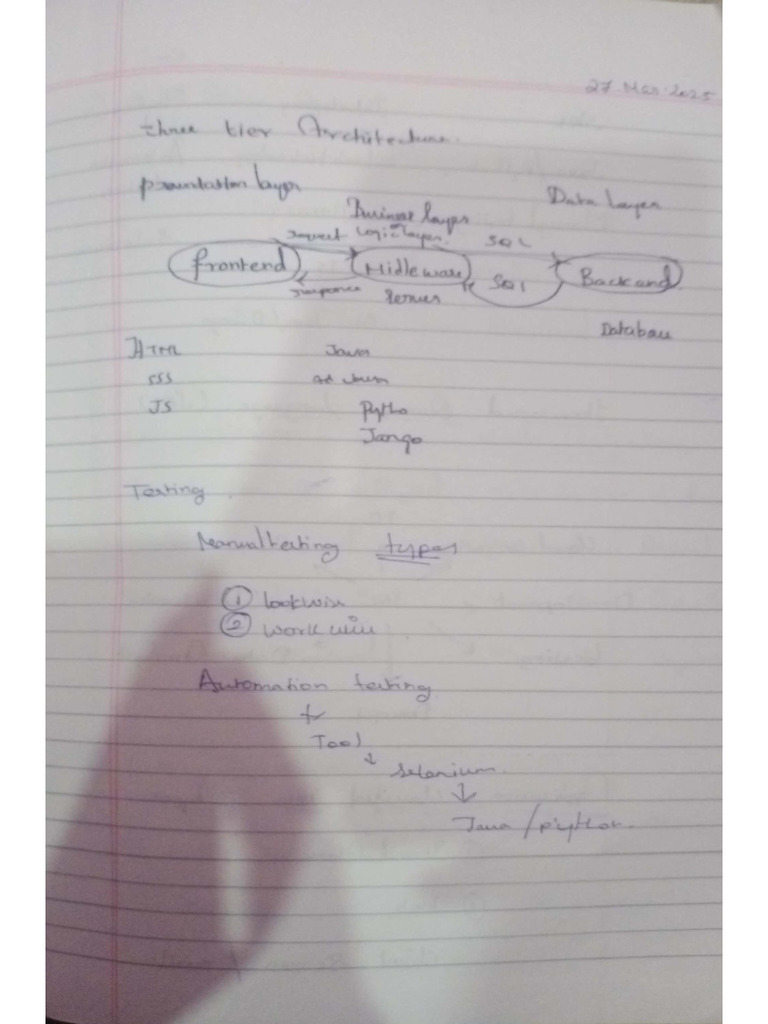 27 Mar 2025
three tier Architecture.
presentation layer
Data Layer
Business layer
request Logic layer. SQL
frontend Midleware SQL Backend
response server
Database
HTML Java
CSS
JS Pytho
Jango
Testing.
Manual testing types
① lookwise
② work wise
Automation testing
Tool
↓ Selenium.
↓
Java / python.